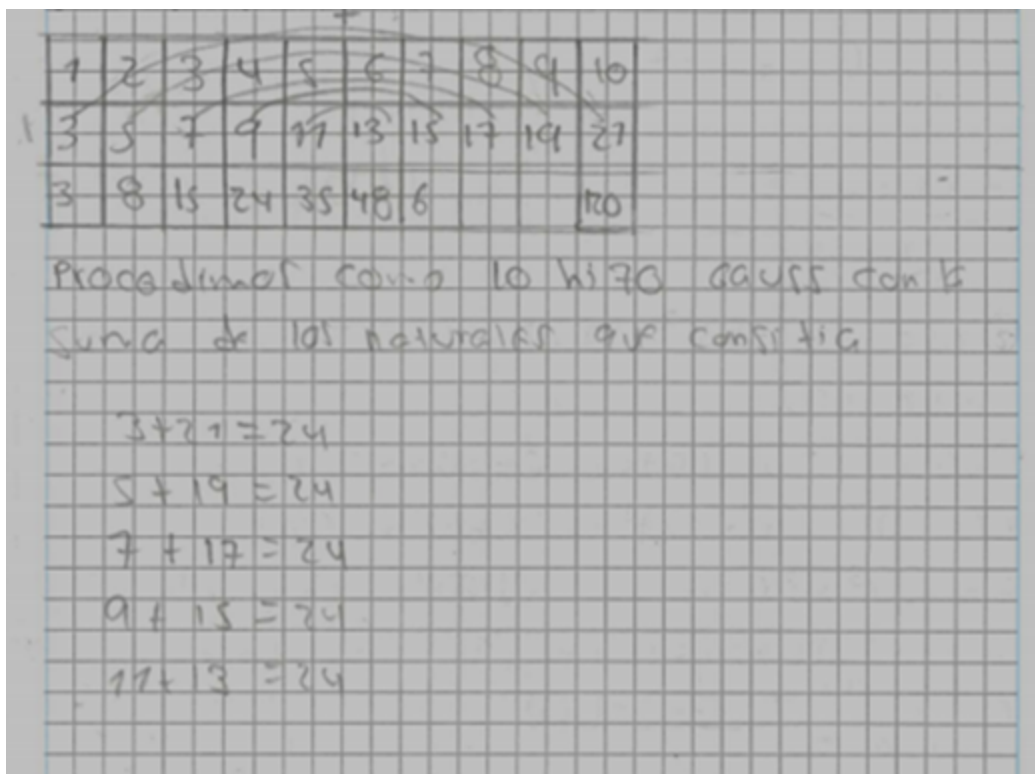 1 2 3 4 5 6 7 8 9 10
3 5 7 9 11 13 15 17 19 21
3 8 15 24 35 48 6 120
Procedimos como lo hi70 Gauss con la
suma de los naturales que consistia
3+21=24
5+19=24
7+17=24
9+15=24
11+13=24